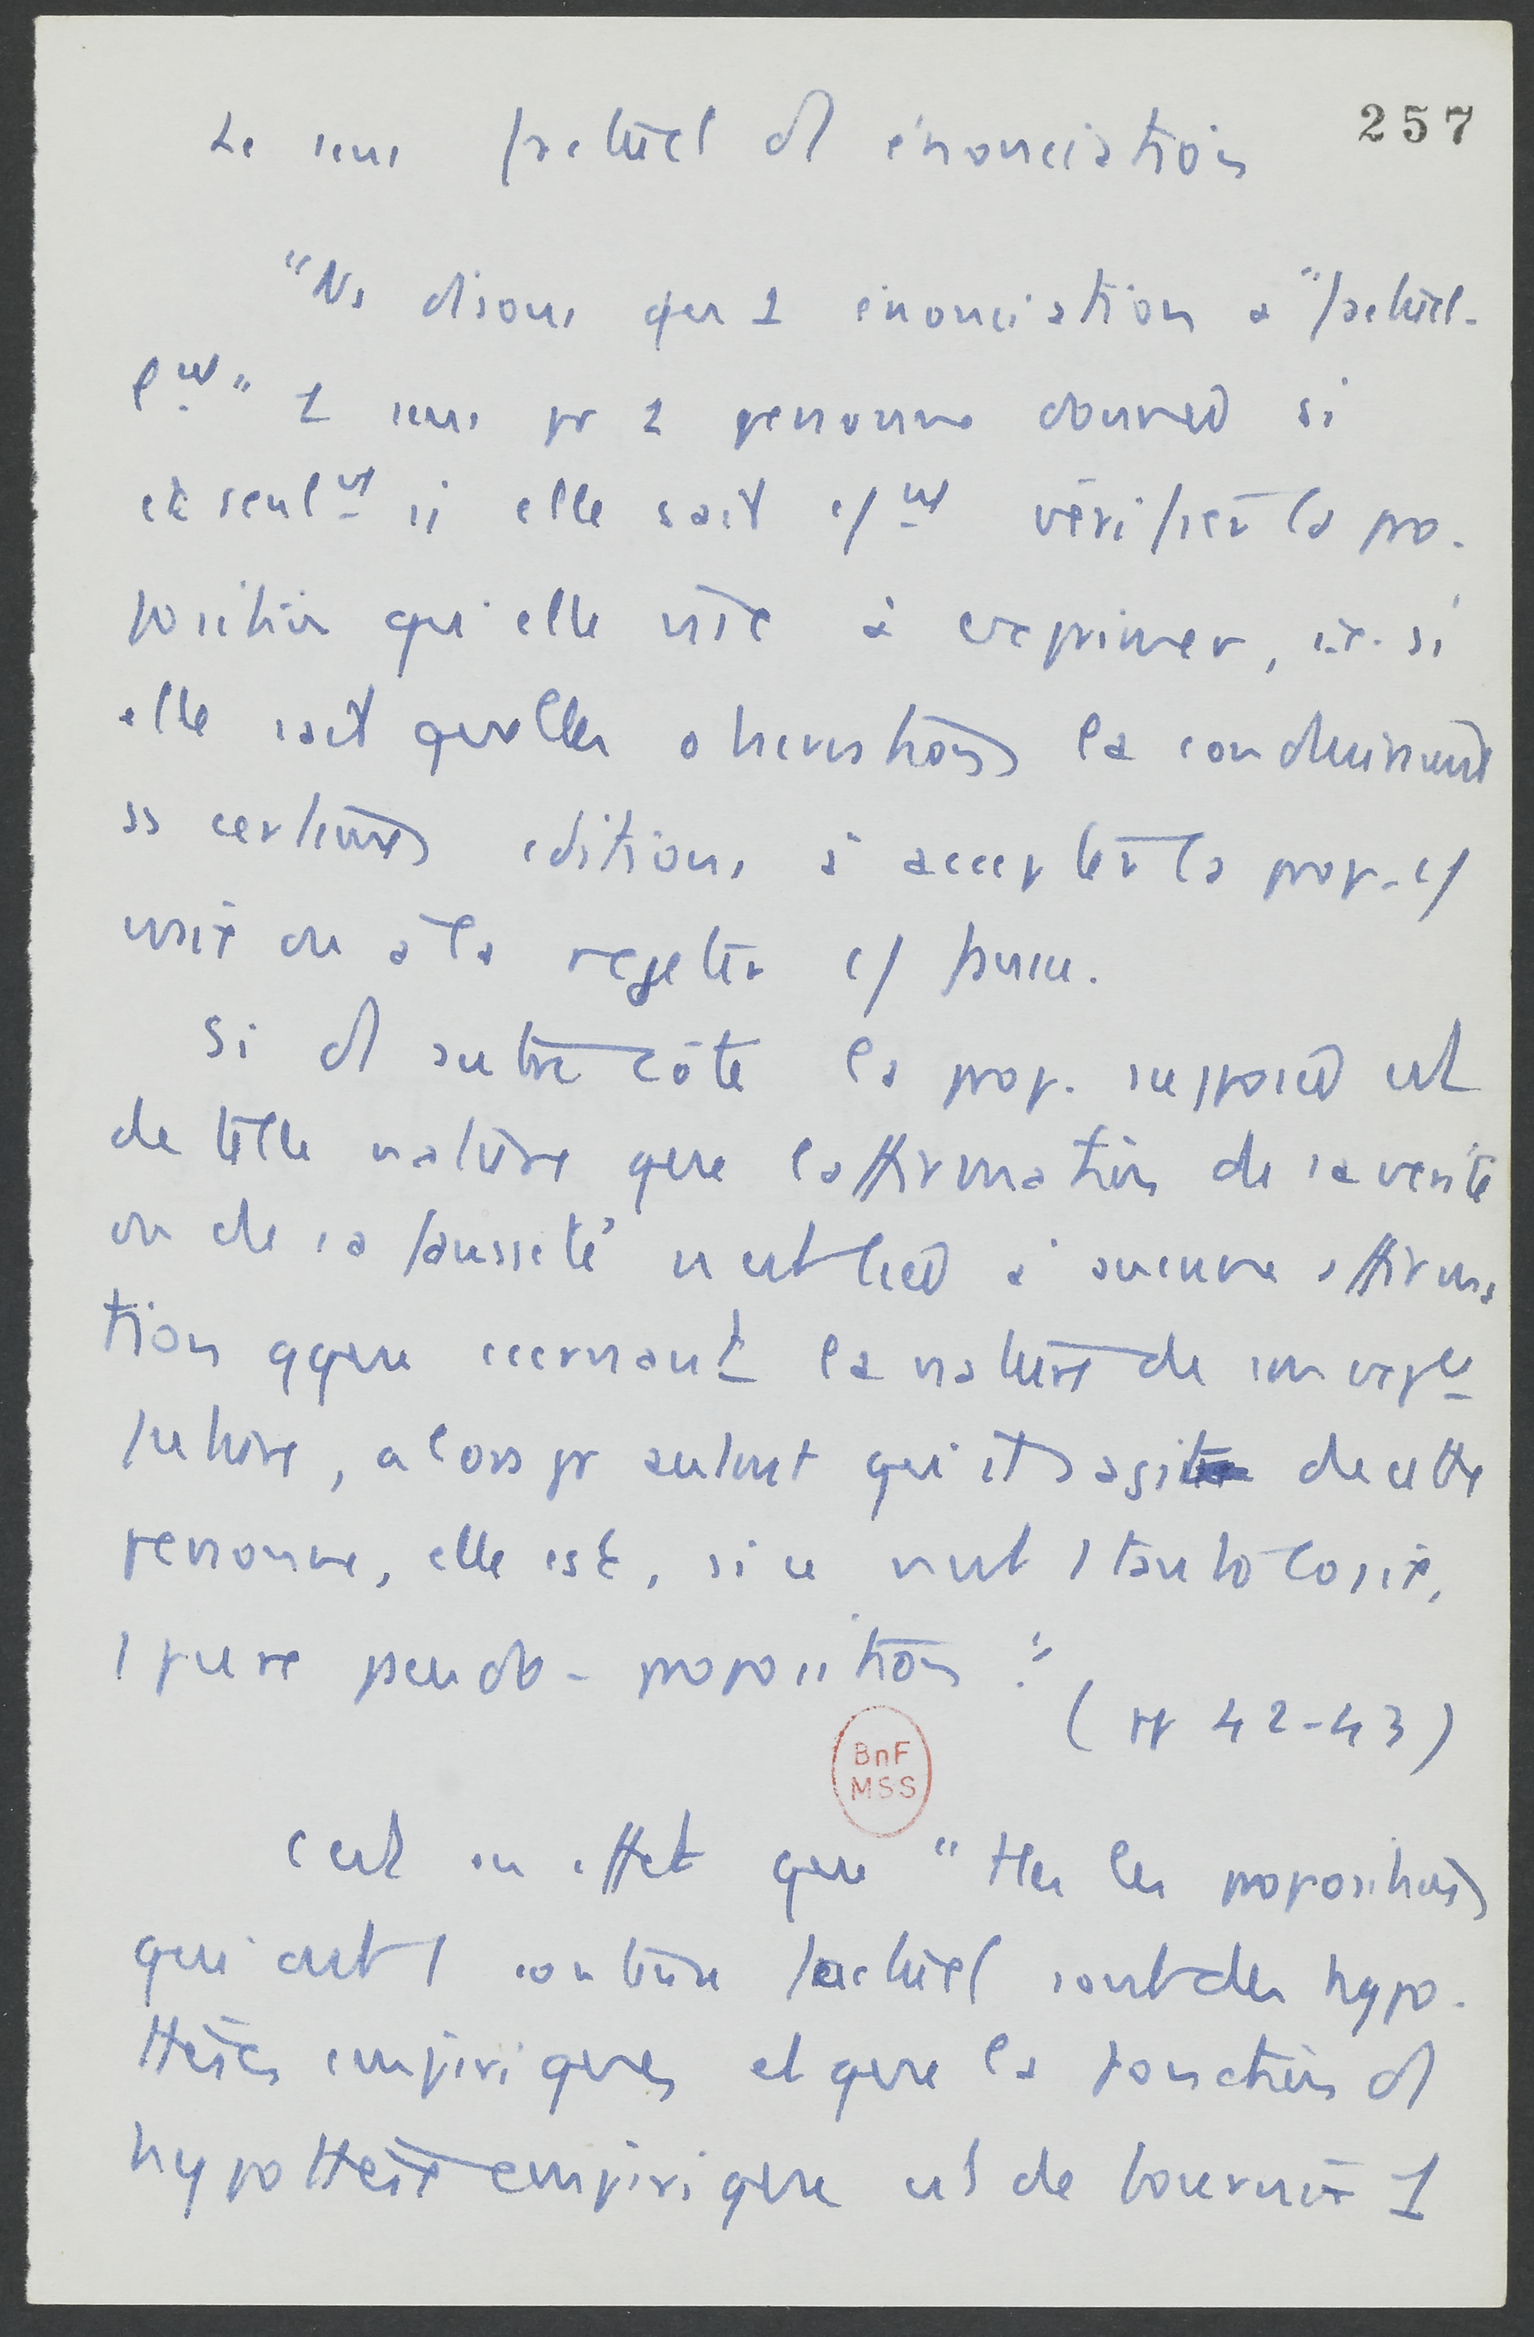 257
Le sens factuel d'1 énonciation
"Ns disons que 1 énonciation a "factuel-
lemt" 1 sens pr 1 personne donnée si
et seulmt si elle sait cmt vérifier la pro-
position qu'elle vise à exprimer, i.e. si
elle sait quelles observations la conduisent
ss certaines cditions à accepter la prop. c/
vraie ou à la rejeter c/ fausse.
Si d'1 autre côté la prop. supposée est
de telle nature que l'affirmation de sa vérité
ou de sa fausseté n'est liée à aucune affirma
tion qque ccernant la nature de son expce
future, alors pr autant qu'il s'agit de cette
personne, elle est, si ce n'est 1 tautologie,
1 pure pseudo-proposition." (pp 42-43)
BnF
MSS
C'est en effet que "ttes les propositions
qui ont 1 contenu factuel sont des hypo-
thèses empiriques et que la fonction d'1
hypothèse empirique est de fournir 1